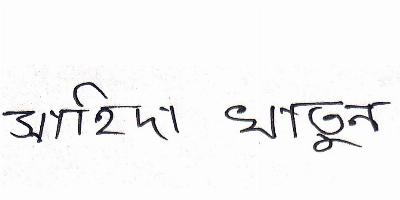 সাহিদা খাতুন